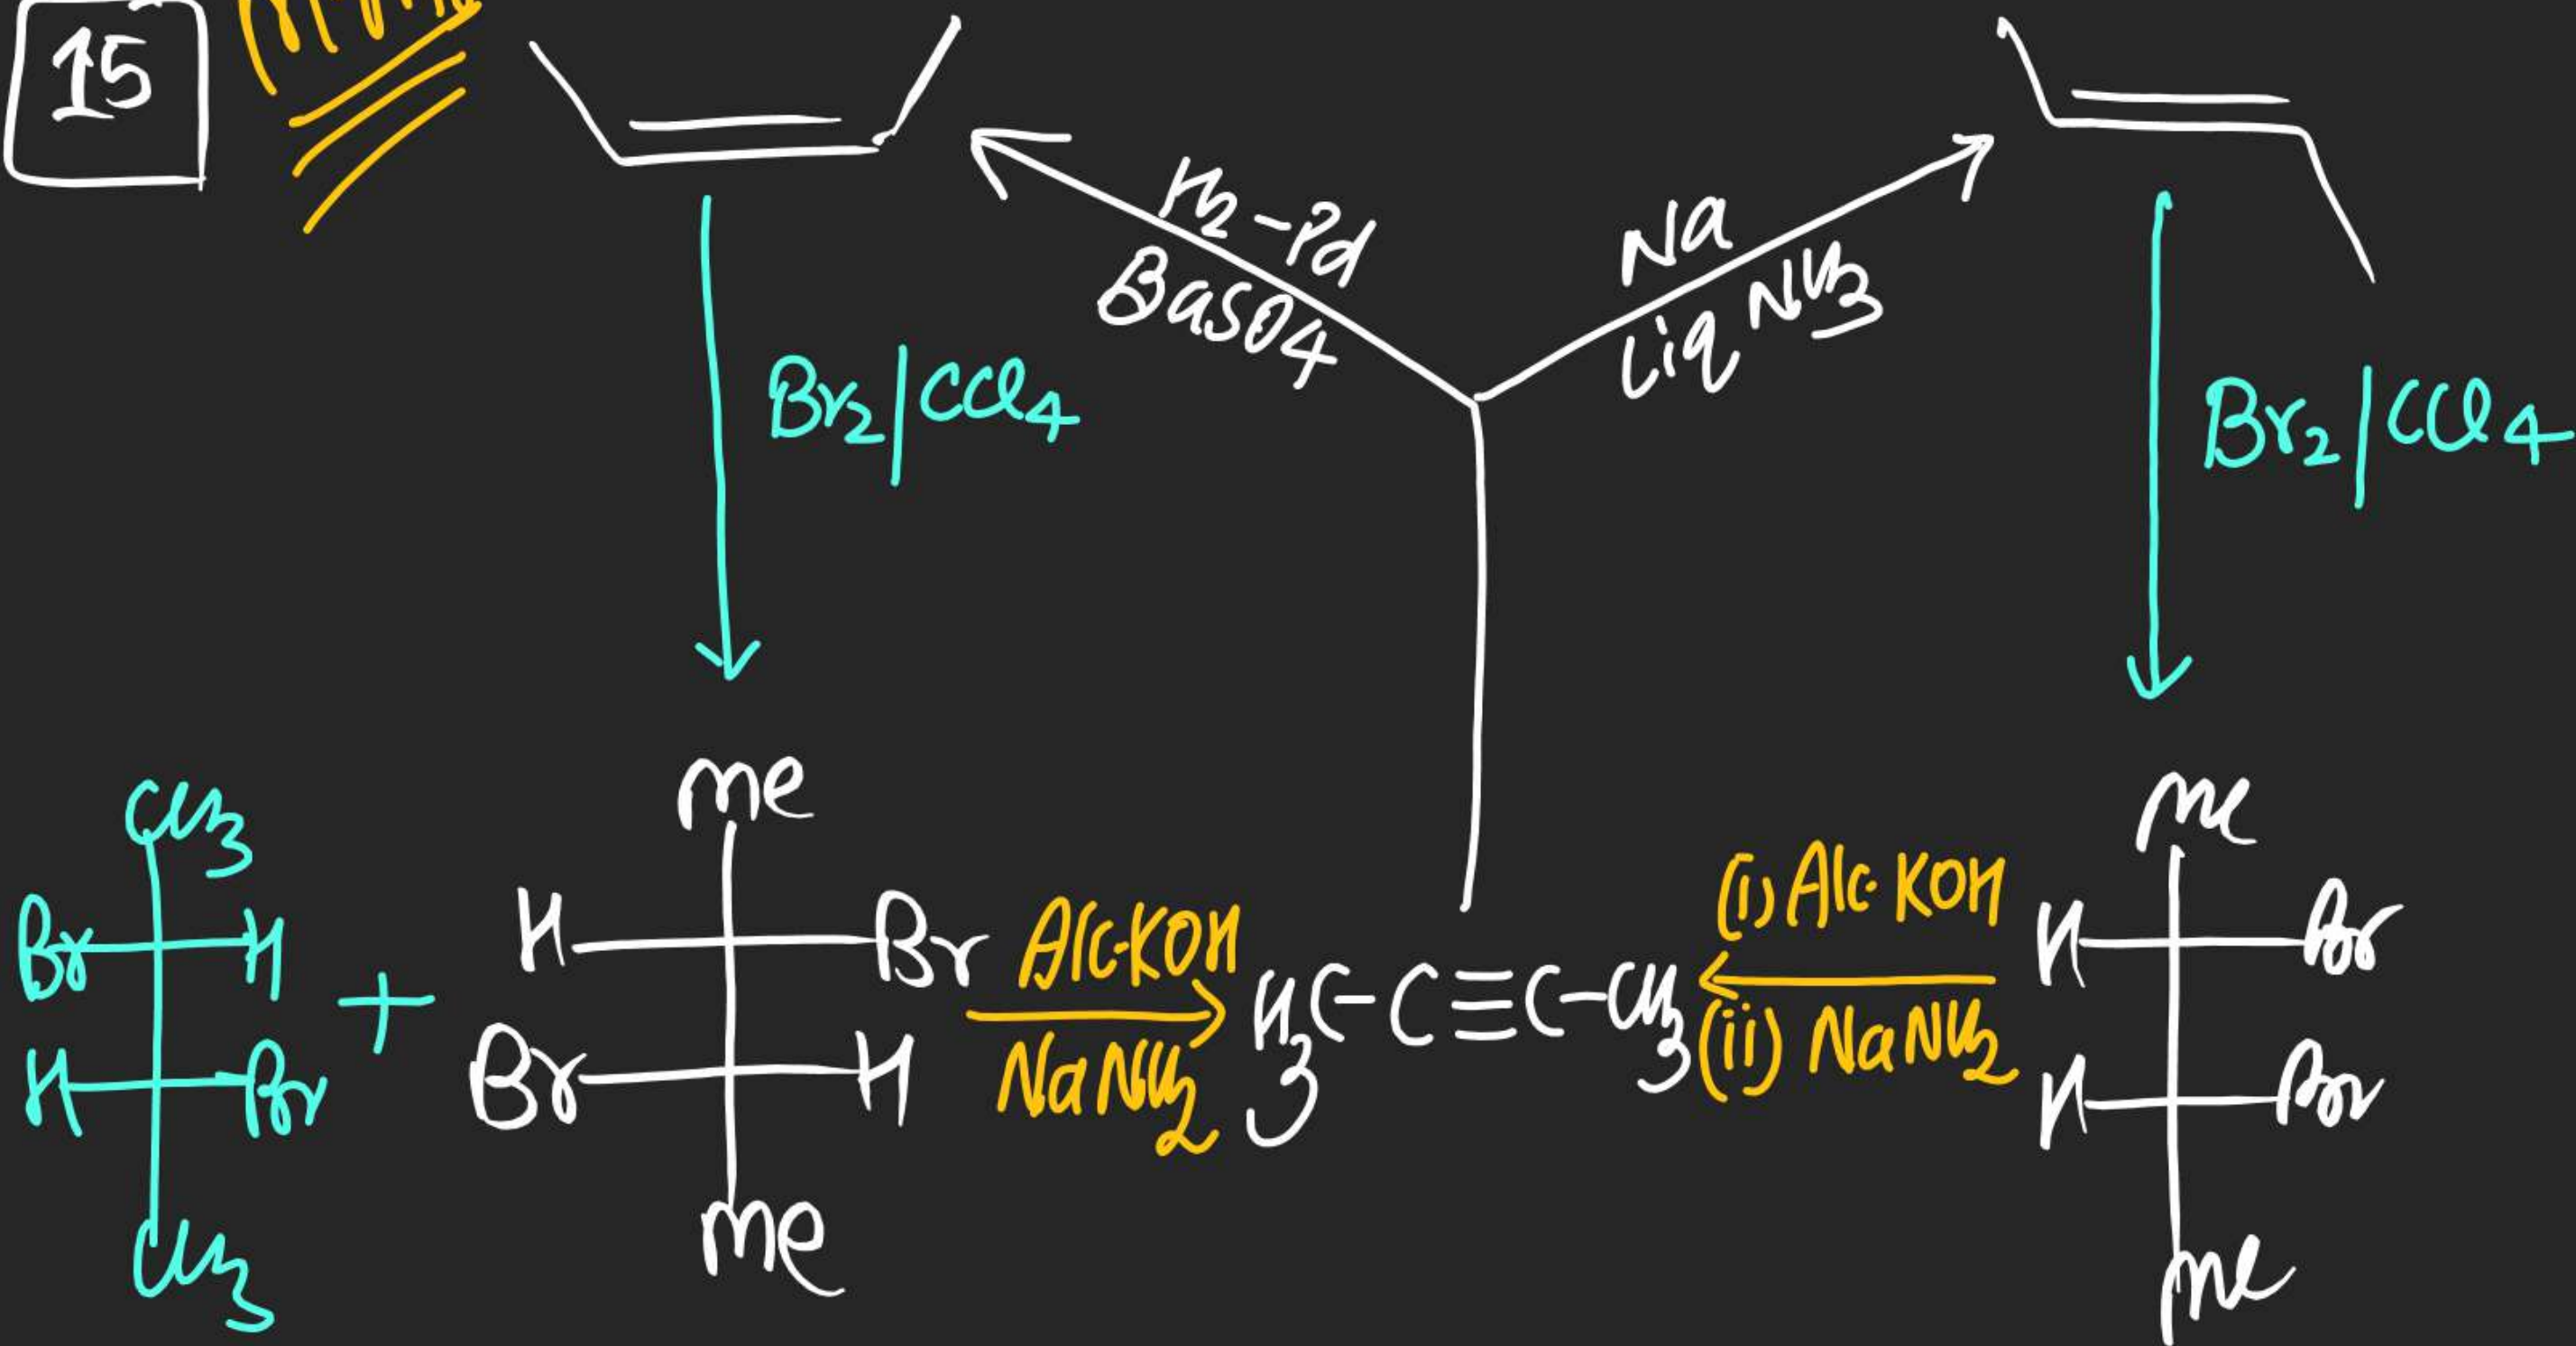 15
H2-Pd
BaSO4
Na
Liq NH3
Br2/CCl4
Br2/CCl4
CH3
Br H
H Br
CH3
+
me
H Br
Br H
me
Alc·KOH
NaNH2
H3C-C≡C-CH3
(i) Alc·KOH
(ii) NaNH2
me
H Br
H Br
me